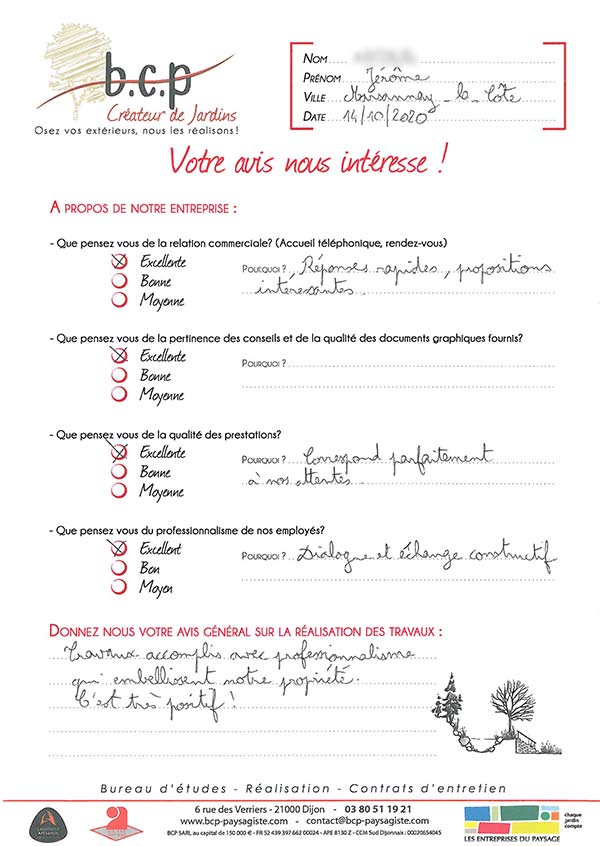 b.c.p
Créateur de Jardins
Osez vos extérieurs, nous les réalisons!
NOM
PRÉNOM Jérôme
VILLE Marsannay-la-Côte
DATE 14/10/2020
Votre avis nous intéresse !
A PROPOS DE NOTRE ENTREPRISE :
- Que pensez vous de la relation commerciale? (Accueil téléphonique, rendez-vous)
Excellente
POURQUOI ? Réponses rapides, propositions
Bonne
interessantes
Moyenne
- Que pensez vous de la pertinence des conseils et de la qualité des documents graphiques fournis?
Excellente
POURQUOI ?
Bonne
Moyenne
- Que pensez vous de la qualité des prestations?
Excellente
POURQUOI ? Correspond parfaitement
Bonne
à nos attentes
Moyenne
- Que pensez vous du professionnalisme de nos employés?
Excellent
POURQUOI ? Dialogue et échange constructif
Bon
Moyen
DONNEZ NOUS VOTRE AVIS GÉNÉRAL SUR LA RÉALISATION DES TRAVAUX :
Travaux accomplis avec professionnalisme
qui embellissent notre propriété.
C'est très positif !
Bureau d'études - Réalisation - Contrats d'entretien
6 rue des Verriers - 21000 Dijon - 03 80 51 19 21
www.bcp-paysagiste.com - contact@bcp-paysagiste.com
BCP SARL au capital de 150 000 € - FR 52 439 397 662 00024 - APE 8130 Z - CCM Sud Dijonnais : 00020654045
LES ENTREPRISES DU PAYSAGE
chaque
jardin
compte